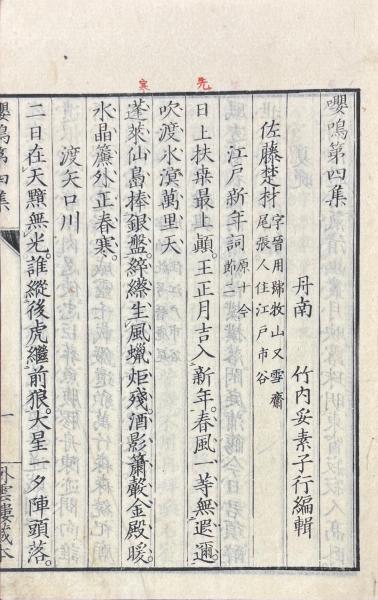 先
寒
嚶鳴第四集
丹南 竹内妥素子行編輯
佐藤楚材 字晉用號牧山又雪齋
尾張人住江戸市谷
江戸新年詞 原十今
節二
日上扶桒最上巓。王正月吉入新年。春風一等無遐邇。
吹渡水濱萬里天
蓬萊仙島捧銀盤。綷縩生風蠟炬殘。酒影簫聲金殿暖。
水晶簾外正春寒。
渡矢口川
二日在天黯無光。誰縱後虎繼前狼。大星一夕陣頭落。
嚶鳴第四集
一
雲樓藏本